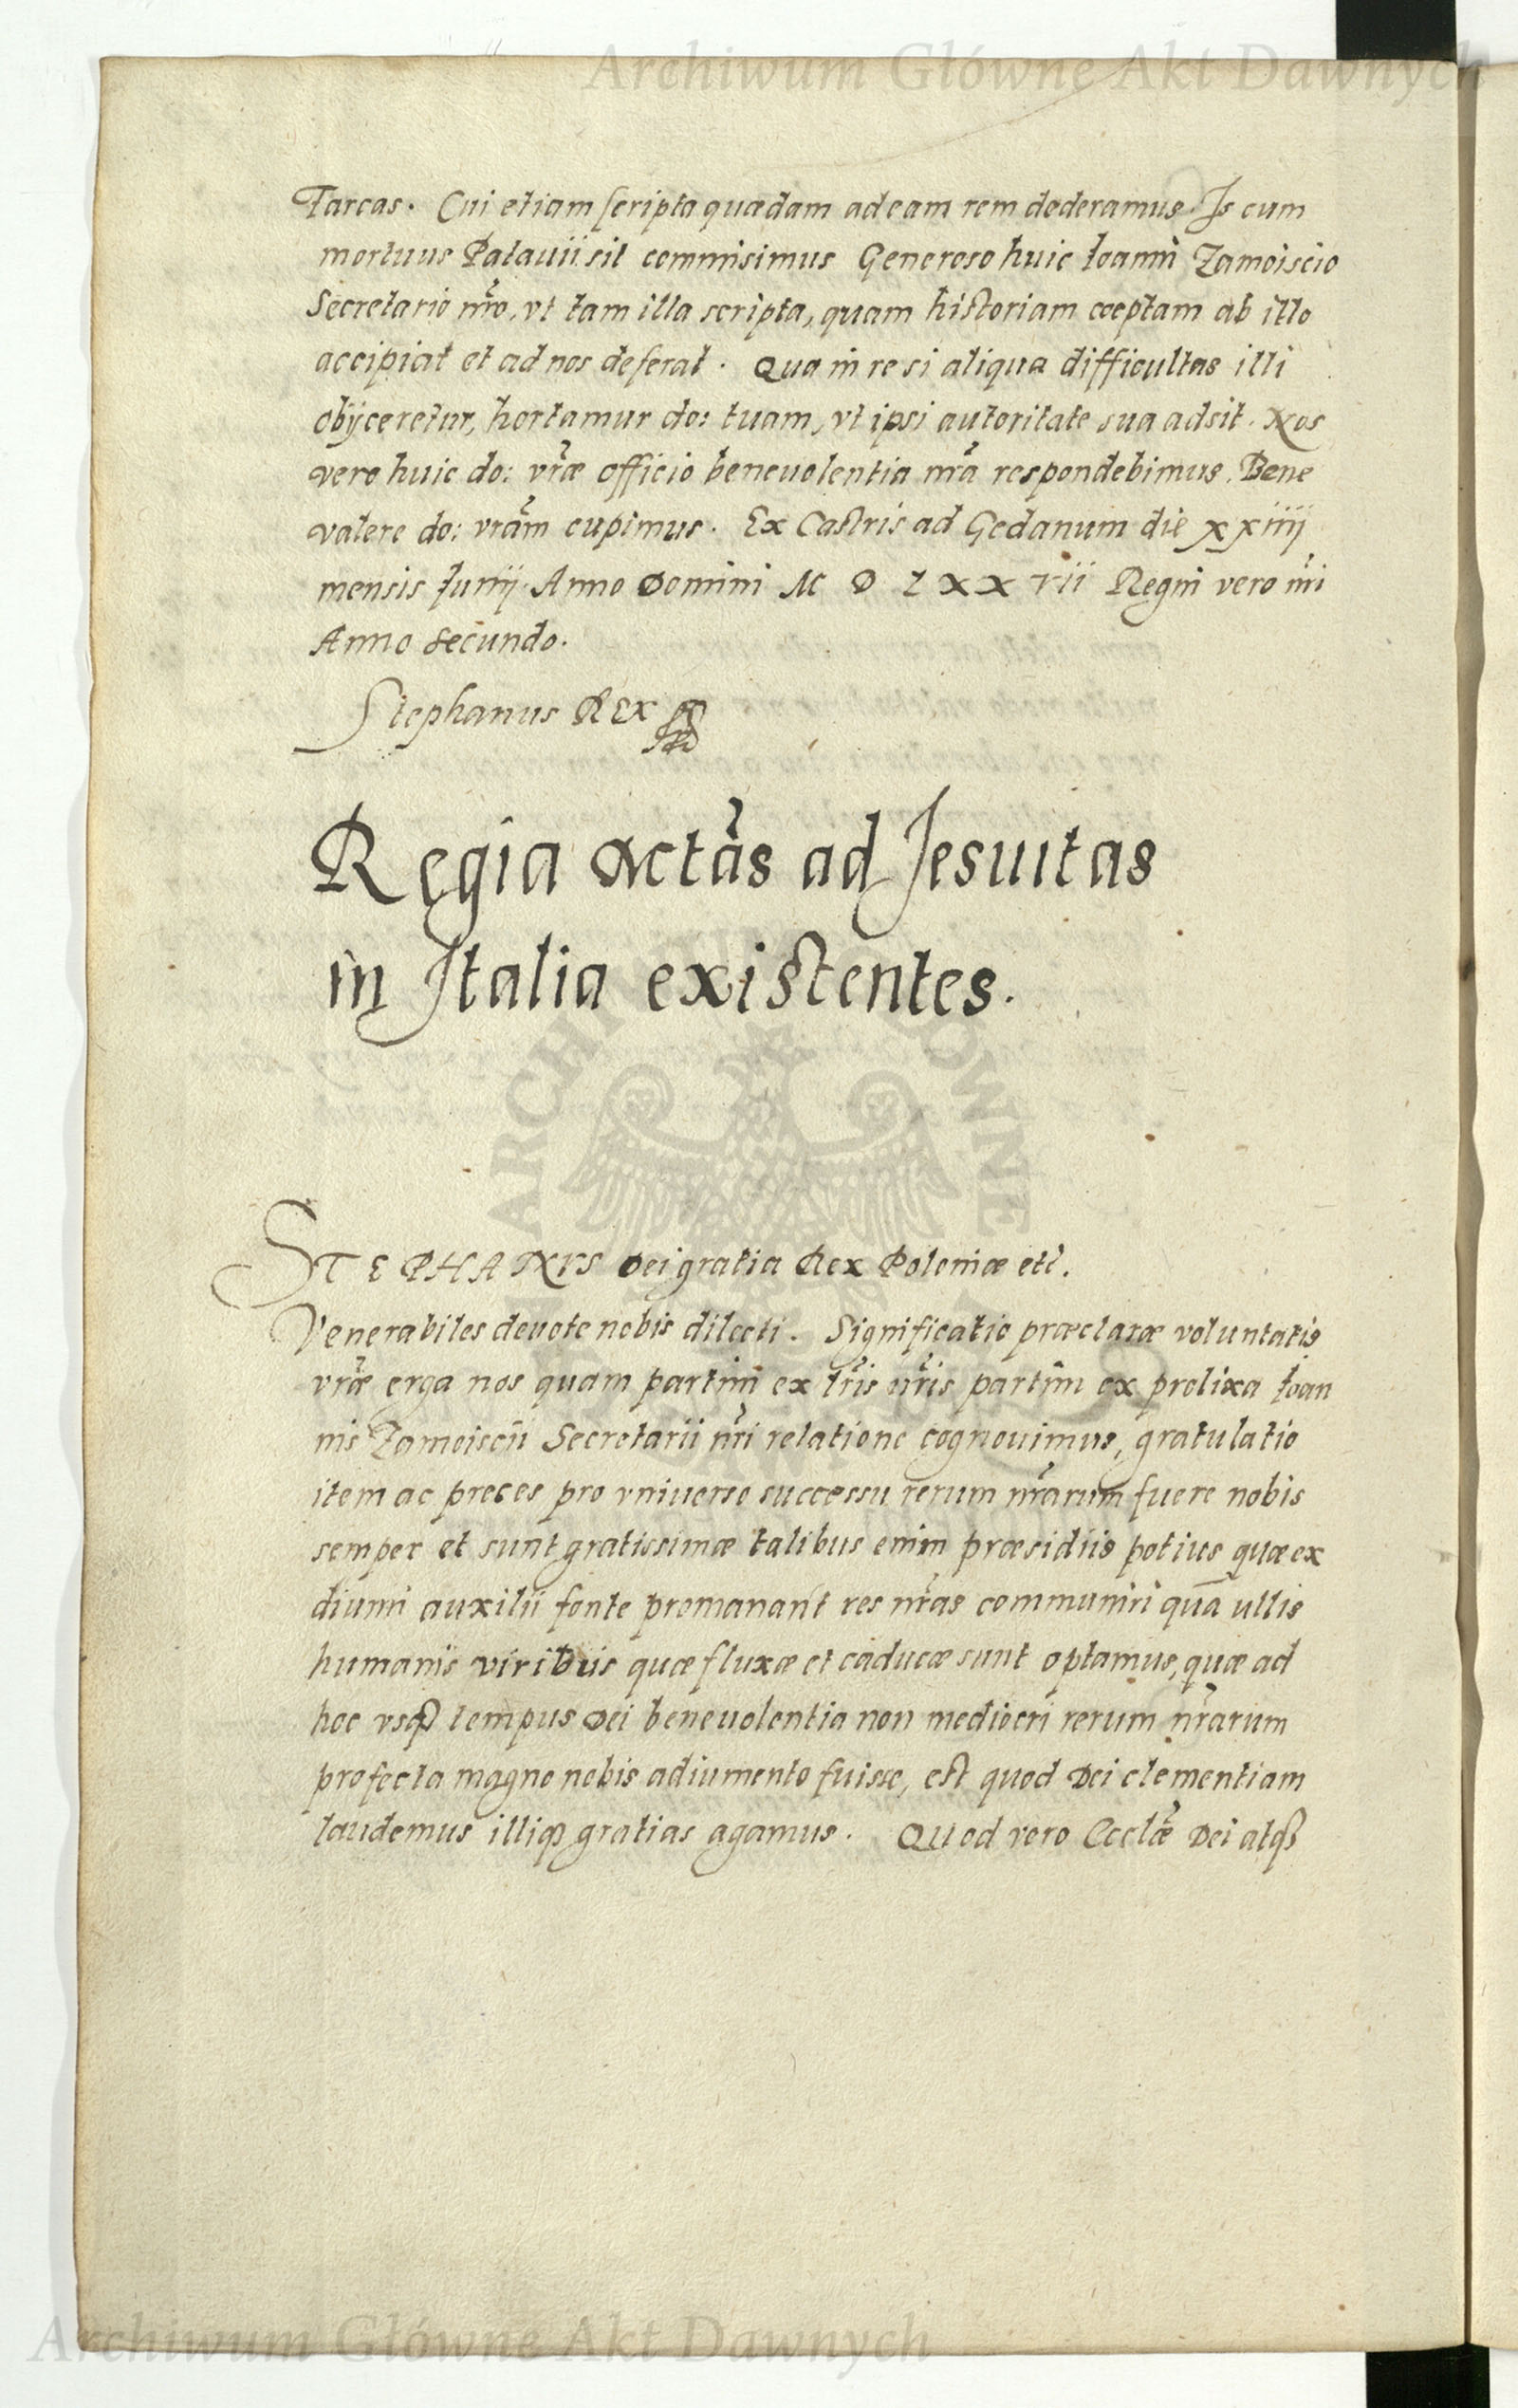 Archiwum Główne Akt Dawnych
Tarcas. Cui etiam scripta quædam ad eam rem dederamus. Is cum
mortuus Patauii sit commisimus Generoso huic Ioanni Zamoiscio
Secretario nro, vt tam illa scripta, quam historiam cœptam ab illo
accipiat et ad nos deferat. Qua in re si aliqua difficultas illi
obijceretur, hortamur do: tuam, vt ipsi autoritate sua adsit. Nos
vero huic do: vræ officio beneuolentia nra respondebimus. Bene
valere do: vram cupimus. Ex Castris ad Gedanum die xxiiij
mensis Iunij. Anno Domini M D L X X VII Regni vero nri
Anno Secundo.
Stephanus REX
Regia Mctas ad Jesuitas
in Italia existentes.
ARCHIWUM GŁÓWNE
STEPHANVS Dei gratia Rex Poloniæ etc.
Venerabiles deuote nobis dilecti. Significatio præclaræ voluntatis
vræ erga nos quam partim ex lris nris partim ex prolixa Ioan
nis Zamoiscii Secretarii nri relatione cognouimus, gratulatio
item ac preces pro vniuerso successu rerum nrarum fuere nobis
semper et sunt gratissimæ talibus enim præsidiis potius quæ ex
diuini auxilii fonte promanant res nras communiri quā ullis
humanis viribus quæ fluxæ et caducæ sunt optamus, quæ ad
hoc vsqꝫ tempus Dei beneuolentia non mediocri rerum nrarum
profecta magno nobis adiumento fuisse, est quod Dei clementiam
laudemus illiqꝫ gratias agamus. Quod vero Ecclæ Dei atqꝫ
Archiwum Główne Akt Dawnych